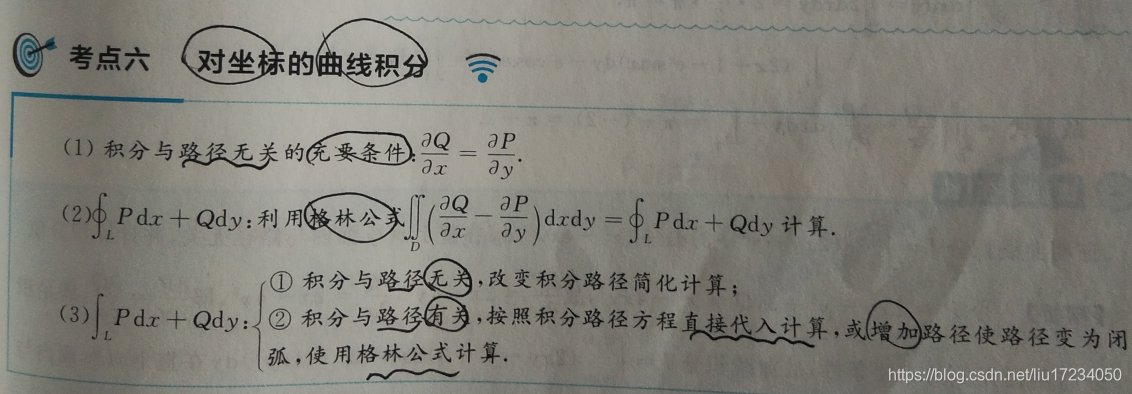 考点六 对坐标的曲线积分
(1) 积分与路径无关的充要条件:∂Q/∂x = ∂P/∂y.
(2)∮_L Pdx + Qdy:利用格林公式∬_D(∂Q/∂x − ∂P/∂y)dxdy = ∮_L Pdx + Qdy 计算.
(3)∫_L Pdx + Qdy:{① 积分与路径无关,改变积分路径简化计算;
② 积分与路径有关,按照积分路径方程直接代入计算,或增加路径使路径变为闭
弧,使用格林公式计算.
https://blog.csdn.net/liu17234050